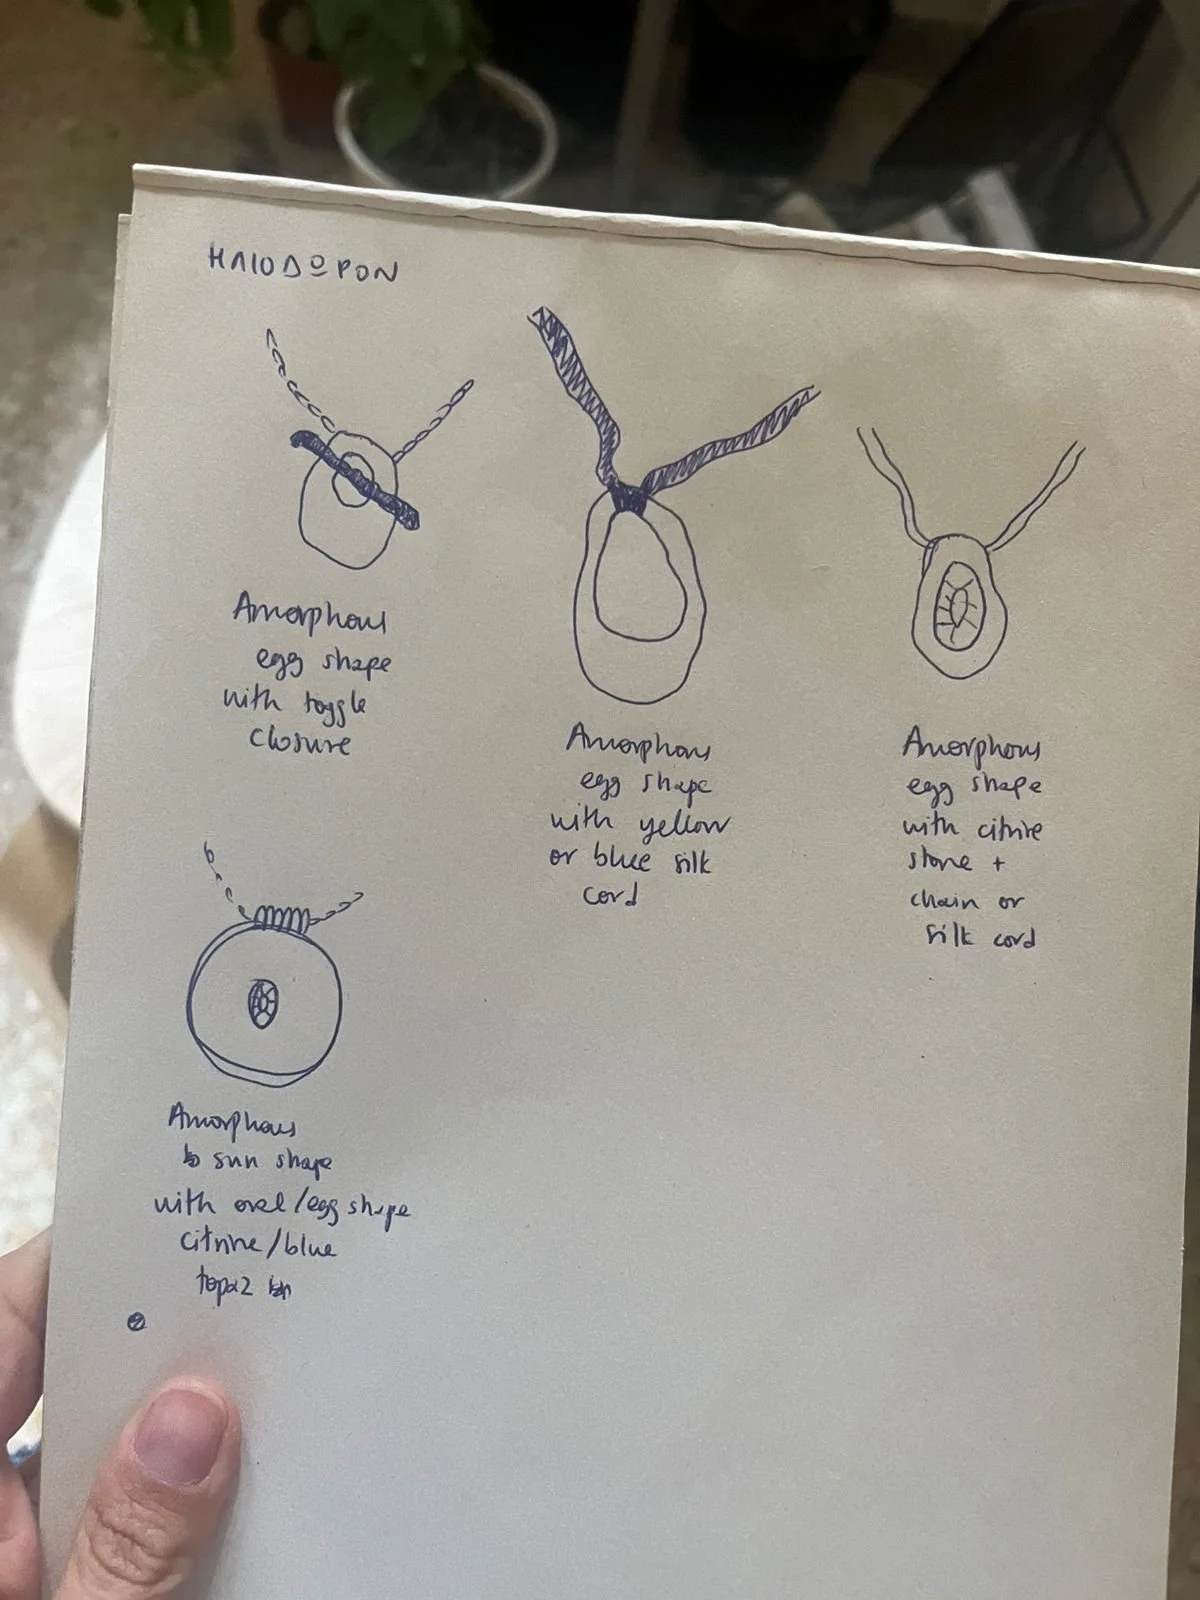 ΗΛΙΟΔΟΡΟΝ
Amorphous
egg shape
with toggle
closure
Amorphous
egg shape
with yellow
or blue silk
cord
Amorphous
egg shape
with citrine
stone +
chain or
silk cord
Amorphous
sun shape
with oval/egg shape
citrine/blue
topaz